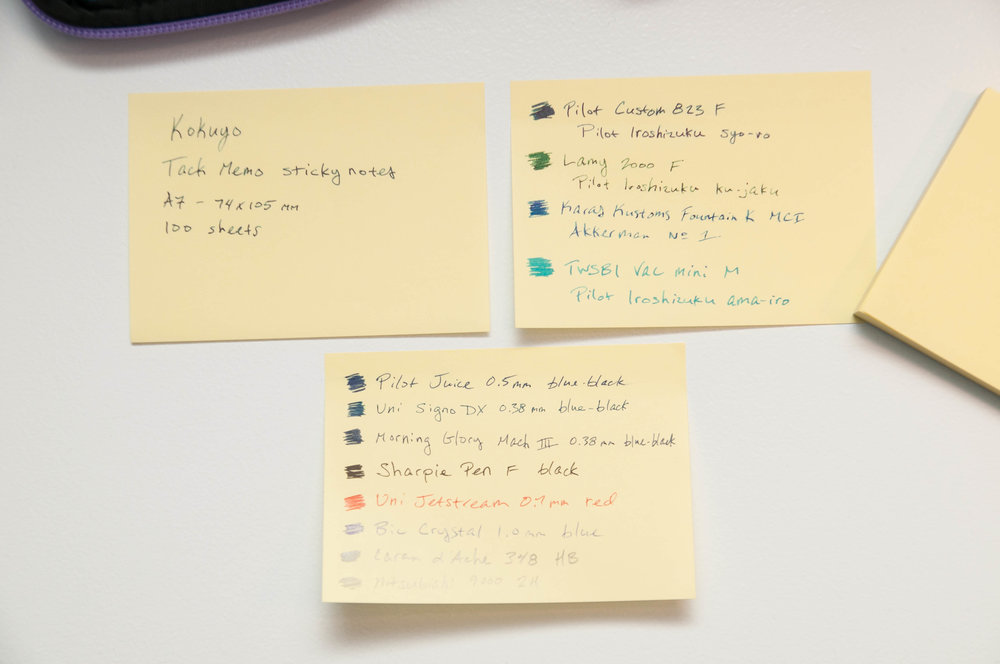 Kokuyo
Tack Memo sticky notes
A7 - 74 x 105 mm
100 sheets
Pilot Custom 823 F
Pilot Iroshizuku syo-ro
Lamy 2000 F
Pilot Iroshizuku ku-jaku
Karas Kustoms Fountain K MCI
Akkerman No 1
TWSBI Vac mini M
Pilot Iroshizuku ama-iro
Pilot Juice 0.5 mm blue-black
Uni Signo DX 0.38 mm blue-black
Morning Glory Mach III 0.38 mm blue-black
Sharpie Pen F black
Uni Jetstream 0.7 mm red
Bic Crystal 1.0 mm blue
Caran d'Ache 348 HB
Mitsubishi 9000 2H